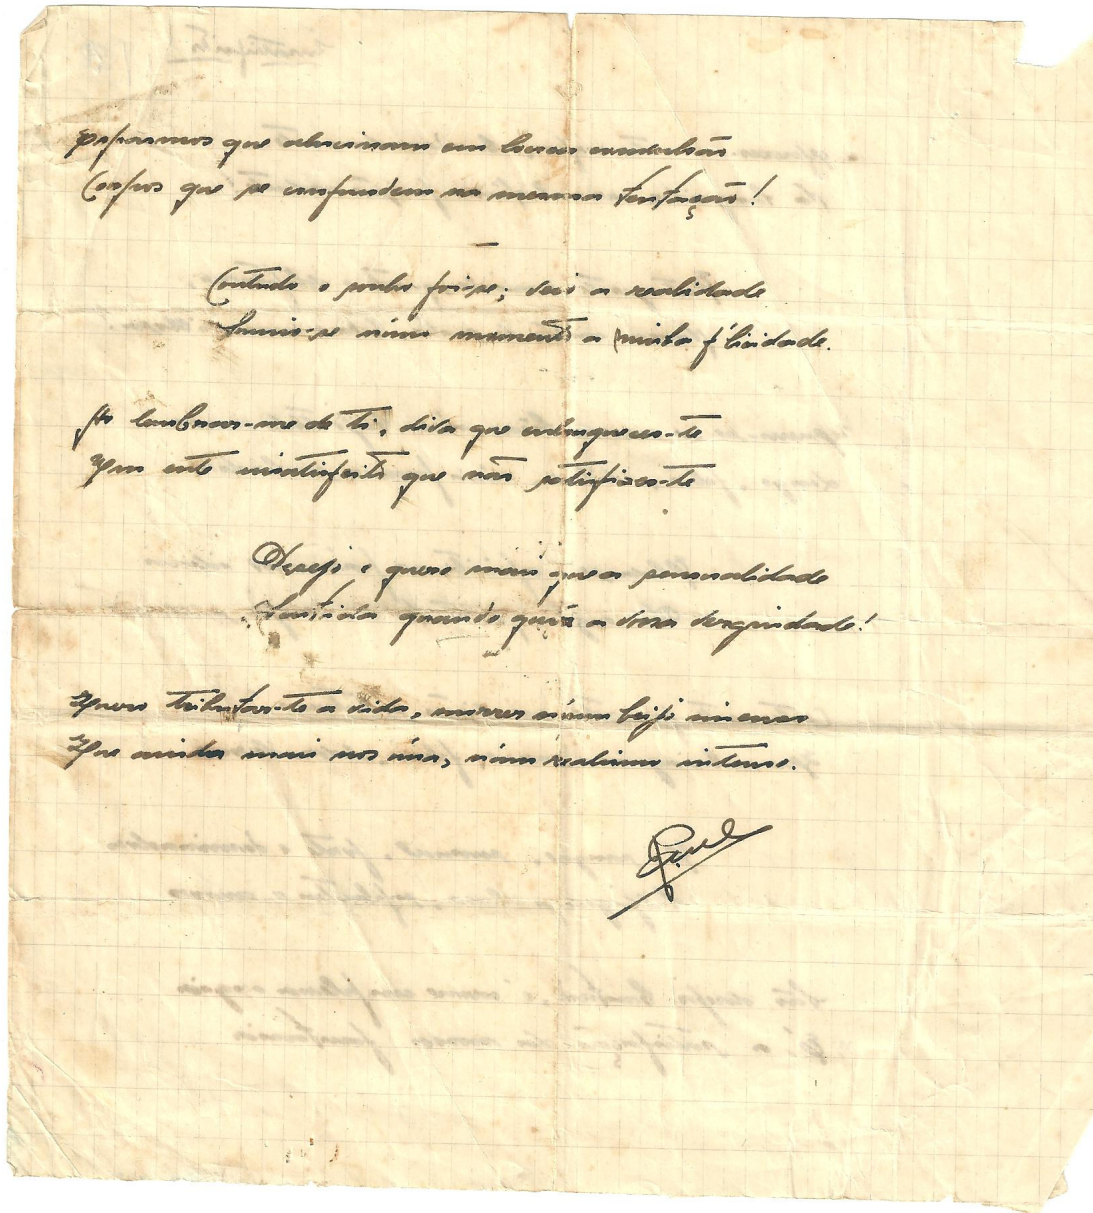 Espasmos que alucinam em loucas convulsão
Corpos que se confundem na mesma tentação!
Contudo o sonho foi-se; veio a realidade
Sumiu-se núm momento a minha felicidade.
Ao lembrar-me de ti, diva que enlouqueces-te
Um ente insatisfeito que não satisfizes-te
Desejo e quero mais que a sensualidade
Sentida quando quiz a vossa virgindade!
Quero tributar-te a vida, morrer núm beijo imenso
Que ainda mais nos úna, núm realismo intenso.